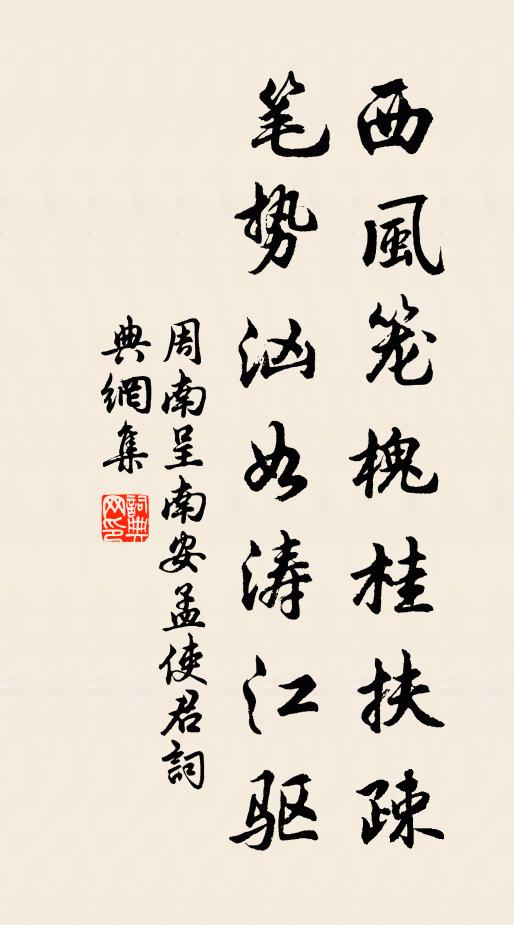 西風笼槐桂扶疎
笔势汹如涛江驱
周南呈南安孟使君詞
典網集
詞典网印